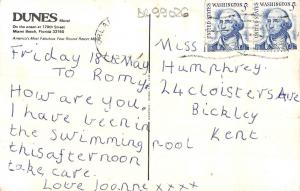 DUNES Motel
On the ocean at 170th Street
Miami Beach, Florida 33160
America's Most Fabulous Year Round Resort Motel
WASHINGTON
WASHINGTON
Friday 18th May
TO Romy
How are you.
I have been in
the swimming pool
this afternoon
take care.
Love Joanne xxxx
Miss
Humphrey.
24 cloisters Ave
Bickley
Kent